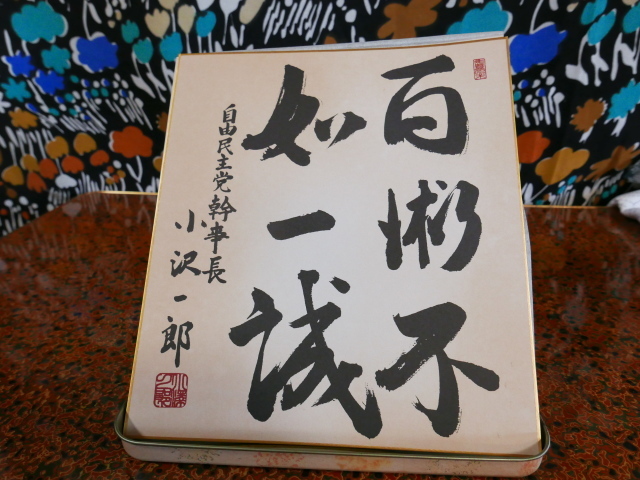 百術不
如一誠
自由民主党幹事長
小沢一郎